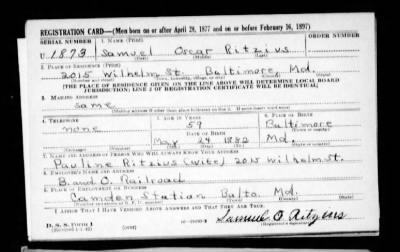 REGISTRATION CARD—(Men born on or after April 28, 1877 and on or before February 16, 1897)
SERIAL NUMBER 1. NAME (Print)
U 1873 Samuel Oscar Ritzius
(First) (Middle) (Last)
2. PLACE OF RESIDENCE (Print)
2015 Wilhelm St. Baltimore Md.
[THE PLACE OF RESIDENCE GIVEN ON THE LINE ABOVE WILL DETERMINE LOCAL BOARD
JURISDICTION; LINE 2 OF REGISTRATION CERTIFICATE WILL BE IDENTICAL]
3. MAILING ADDRESS
same
[Mailing address if other than place indicated on line 2. If same insert word same]
4. TELEPHONE 5. AGE IN YEARS 6. PLACE OF BIRTH
none 59 Baltimore
DATE OF BIRTH (Town or county)
May 24 1882 Md.
(Mo.) (Day) (Yr.) (State or country)
7. NAME AND ADDRESS OF PERSON WHO WILL ALWAYS KNOW YOUR ADDRESS
Pauline Ritzius (wife) 2015 Wilhelm St.
8. EMPLOYER'S NAME AND ADDRESS
B. and O. Railroad
9. PLACE OF EMPLOYMENT OR BUSINESS
Camden Station Balto. Md.
I AFFIRM THAT I HAVE VERIFIED ABOVE ANSWERS AND THAT THEY ARE TRUE.
Samuel O Ritzius
D. S. S. Form 1
(Revised 4-1-42) (over)